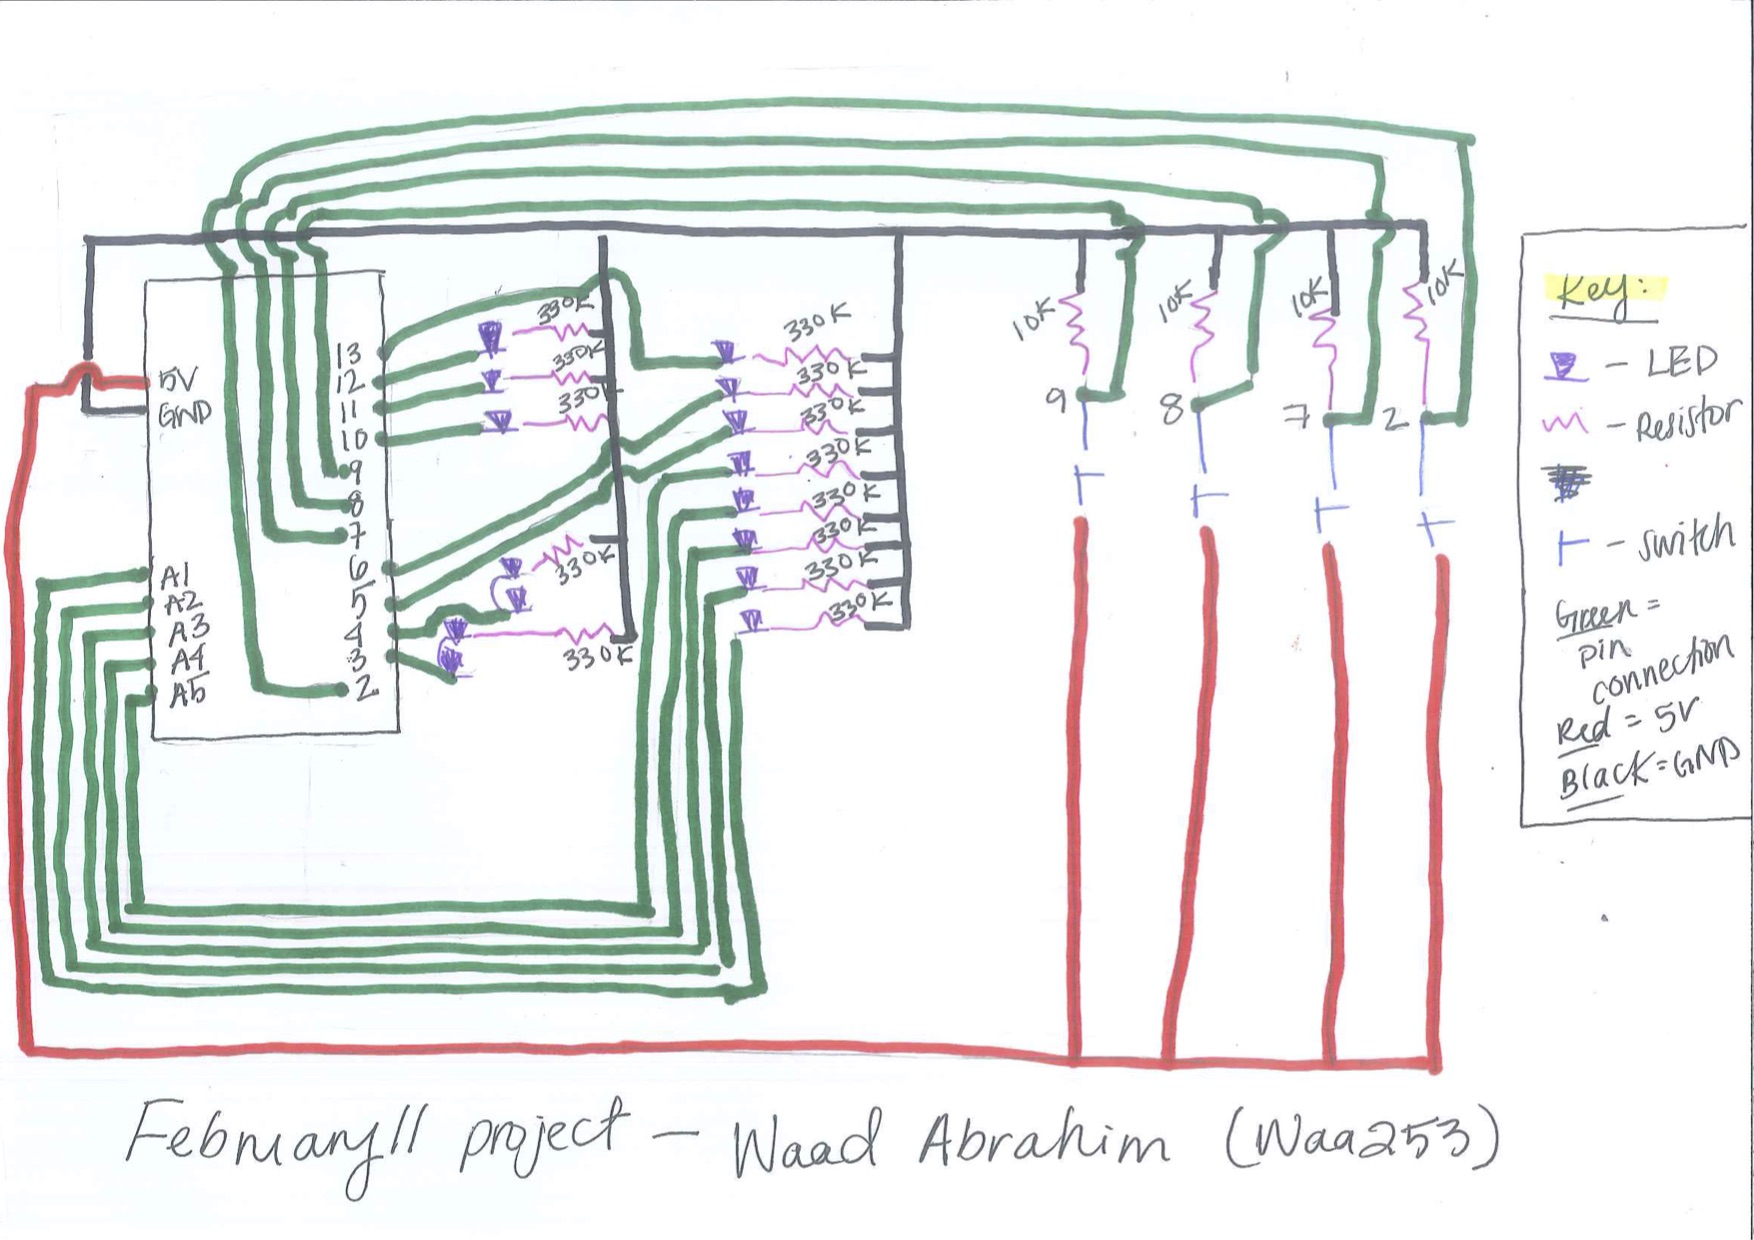 13
12
11
10
9
8
7
6
5
4
3
2
5V
GND
A1
A2
A3
A4
A5
330K
330K
330K
330K
330K
330K
330K
330K
330K
330K
330K
330K
330K
10K
10K
10K
10K
9
8
7
2
Key:
- LED
- Resistor
- switch
Green =
pin
connection
Red = 5V
Black = GND
February 11 project - Waad Abrahim (Waa253)